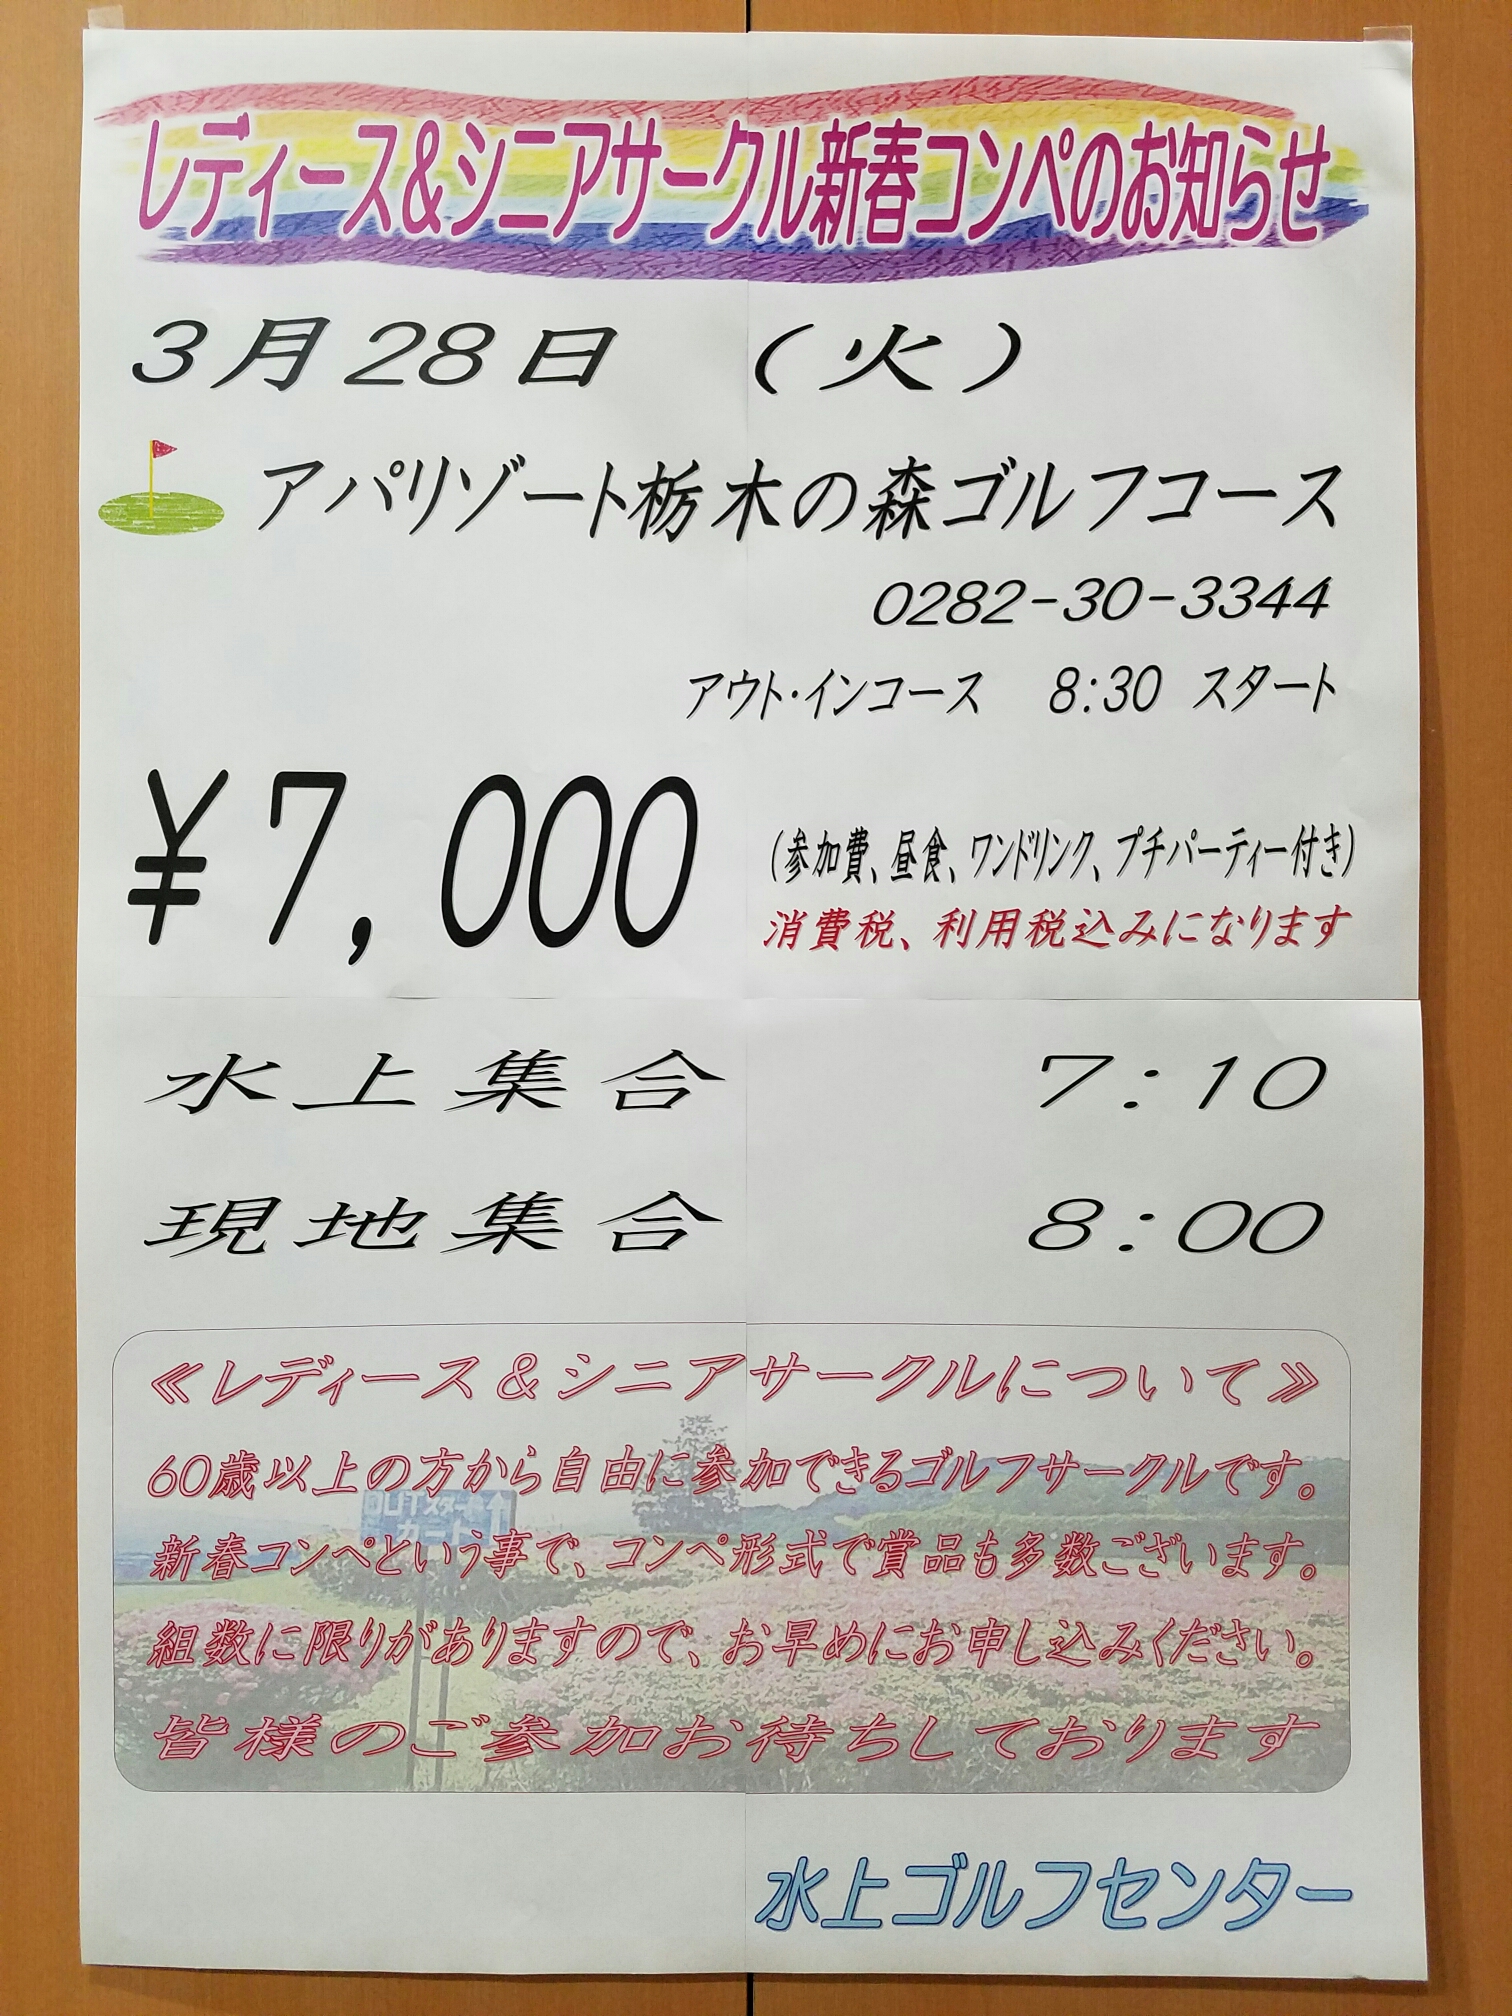 レディース&シニアサークル新春コンペのお知らせ
3月28日 (火)
アパリゾート栃木の森ゴルフコース
0282-30-3344
アウト・インコース 8:30 スタート
¥7,000
(参加費、昼食、ワンドリンク、プチパーティー付き)
消費税、利用税込みになります
水上集合 7:10
現地集合 8:00
≪レディース&シニアサークルについて≫
60歳以上の方から自由に参加できるゴルフサークルです。
新春コンペという事で、コンペ形式で賞品も多数ございます。
組数に限りがありますので、お早めにお申し込みください。
皆様のご参加お待ちしております
OUTスタート
カート
水上ゴルフセンター